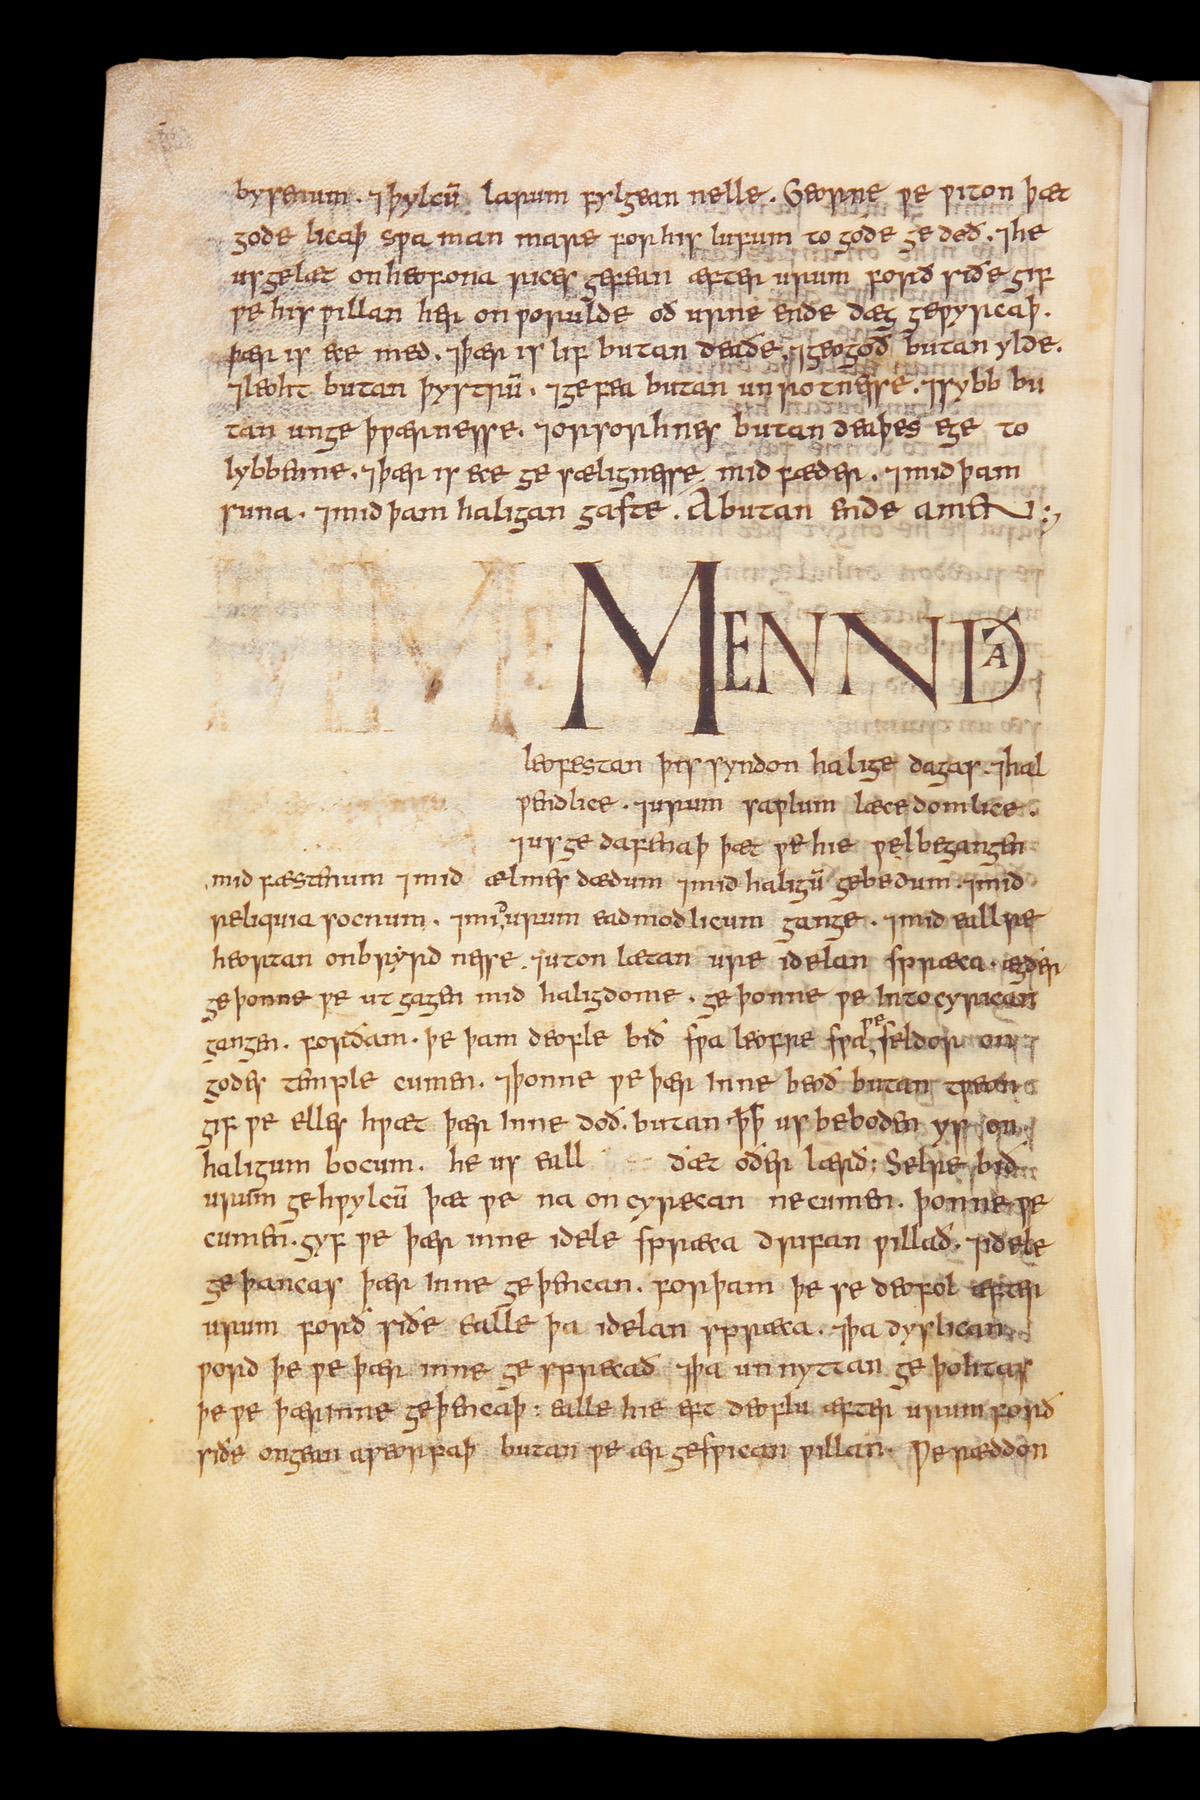 bysenum . ⁊ þylcū larum fylgean nelle . Georne ƿe ƿiton þæt
gode licaþ sƿa man mare for his lufum to gode ge deð . ⁊ he
us gelæt on heofona rices gefean æfter urum forð siðe gif
ƿe his ƿillan her on ƿorulde oð urne ende dæg geƿyrcaþ .
þær is ece med . ⁊ þær is lif butan deaðe . ⁊ geogoð butan ylde .
⁊ leoht butan þystrū . ⁊ ge fea butan un rotnesse . ⁊ sybb bu
tan unge þƿærnesse . ⁊ orsorhnes butan deaþes ege to
lybbenne . ⁊ þær is ece ge sælignesse mid fæder . ⁊ mid þam
suna . ⁊ mid þam haligan gaste . A butan ende amen :
MENN ÐA
leofestan þis syndon halige dagas . ⁊ hal
ƿendlice . ⁊ urum saƿlum læcedomlice .
⁊ us ge dafenaþ þæt ƿe hie ƿel begangen
mid fæstenum ⁊ mid ælmes dædum ⁊ mid haligū gebedum . ⁊ mid
reliquia socnum . ⁊ mid urum eadmodlicum gange . ⁊ mid eallre
heortan onbryrd nesse . ⁊ uton lætan ure idelan spræca . ægðer
ge þonne ƿe ut gagen mid haligdome . ge þonne ƿe into cyrican
gangen . forðam . þe þam deofle bið sƿa leofre sƿa ƿe seldor on
godes temple cumen . ⁊ þonne ƿe þær inne beoð butan tƿeon
gif ƿe elles hƿæt þær inne doð . butan þæt us beboden ys on
haligum bocum . he us eall ðæt oðer læsið : Selre bið
urum gehƿylcū þæt ƿe na on cyrecan ne cumen . þonne ƿe
cumen . gyf ƿe þær inne idele spræca drifan ƿillað . ⁊ idele
ge þancas þær inne ge þencan . forþam þe se deofol æfter
urum forð siðe ealle þa idelan spræca . ⁊ þa dyslican
ƿord þe ƿe þær inne ge sprecað ⁊ þa un nyttan ge þohtas
þe ƿe þærinne geþencaþ : ealle hie eft deoflu æfter urum forð
siðe ongean aƿeorpaþ butan ƿe ær gesƿican ƿillan . Ƿe ræddon